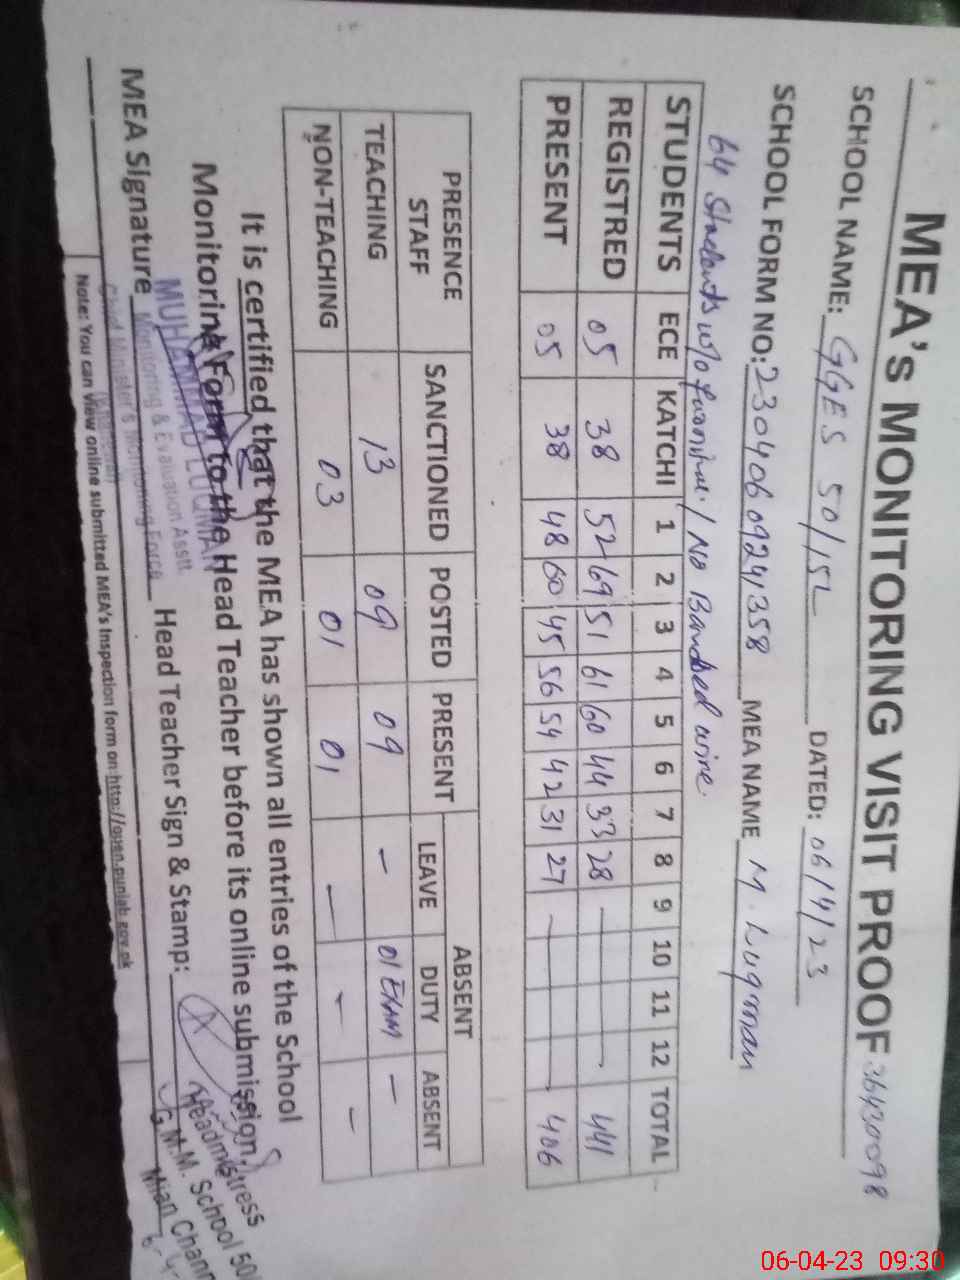 MEA's MONITORING VISIT PROOF 36430098
SCHOOL NAME: GGES 50/15L DATED: 06/4/23
SCHOOL FORM NO: 23040609241358 MEA NAME M. Luqman
64 Students w/o furniture / No Barbed wire.
STUDENTS ECE KATCHI 1 2 3 4 5 6 7 8 9 10 11 12 TOTAL
REGISTRED 05 38 52 69 51 61 60 44 33 28 — 441
PRESENT 05 38 48 60 45 56 54 42 31 27 — 406
PRESENCE STAFF SANCTIONED POSTED PRESENT ABSENT
LEAVE DUTY ABSENT
TEACHING 13 09 09 — 01 EXAM —
NON-TEACHING 03 01 01 — — —
It is certified that the MEA has shown all entries of the School
Monitoring Form to the Head Teacher before its online submission.
MUHAMMAD LUQMAN
MEA Signature Head Teacher Sign & Stamp:
Monitoring & Evaluation Asstt.
Chief Minister's Monitoring Force
Headmistress
G.M.M. School 50/
Mian Chann
Note: You can view online submitted MEA's Inspection form on http://open.punjab.gov.pk
06-04-23 09:30